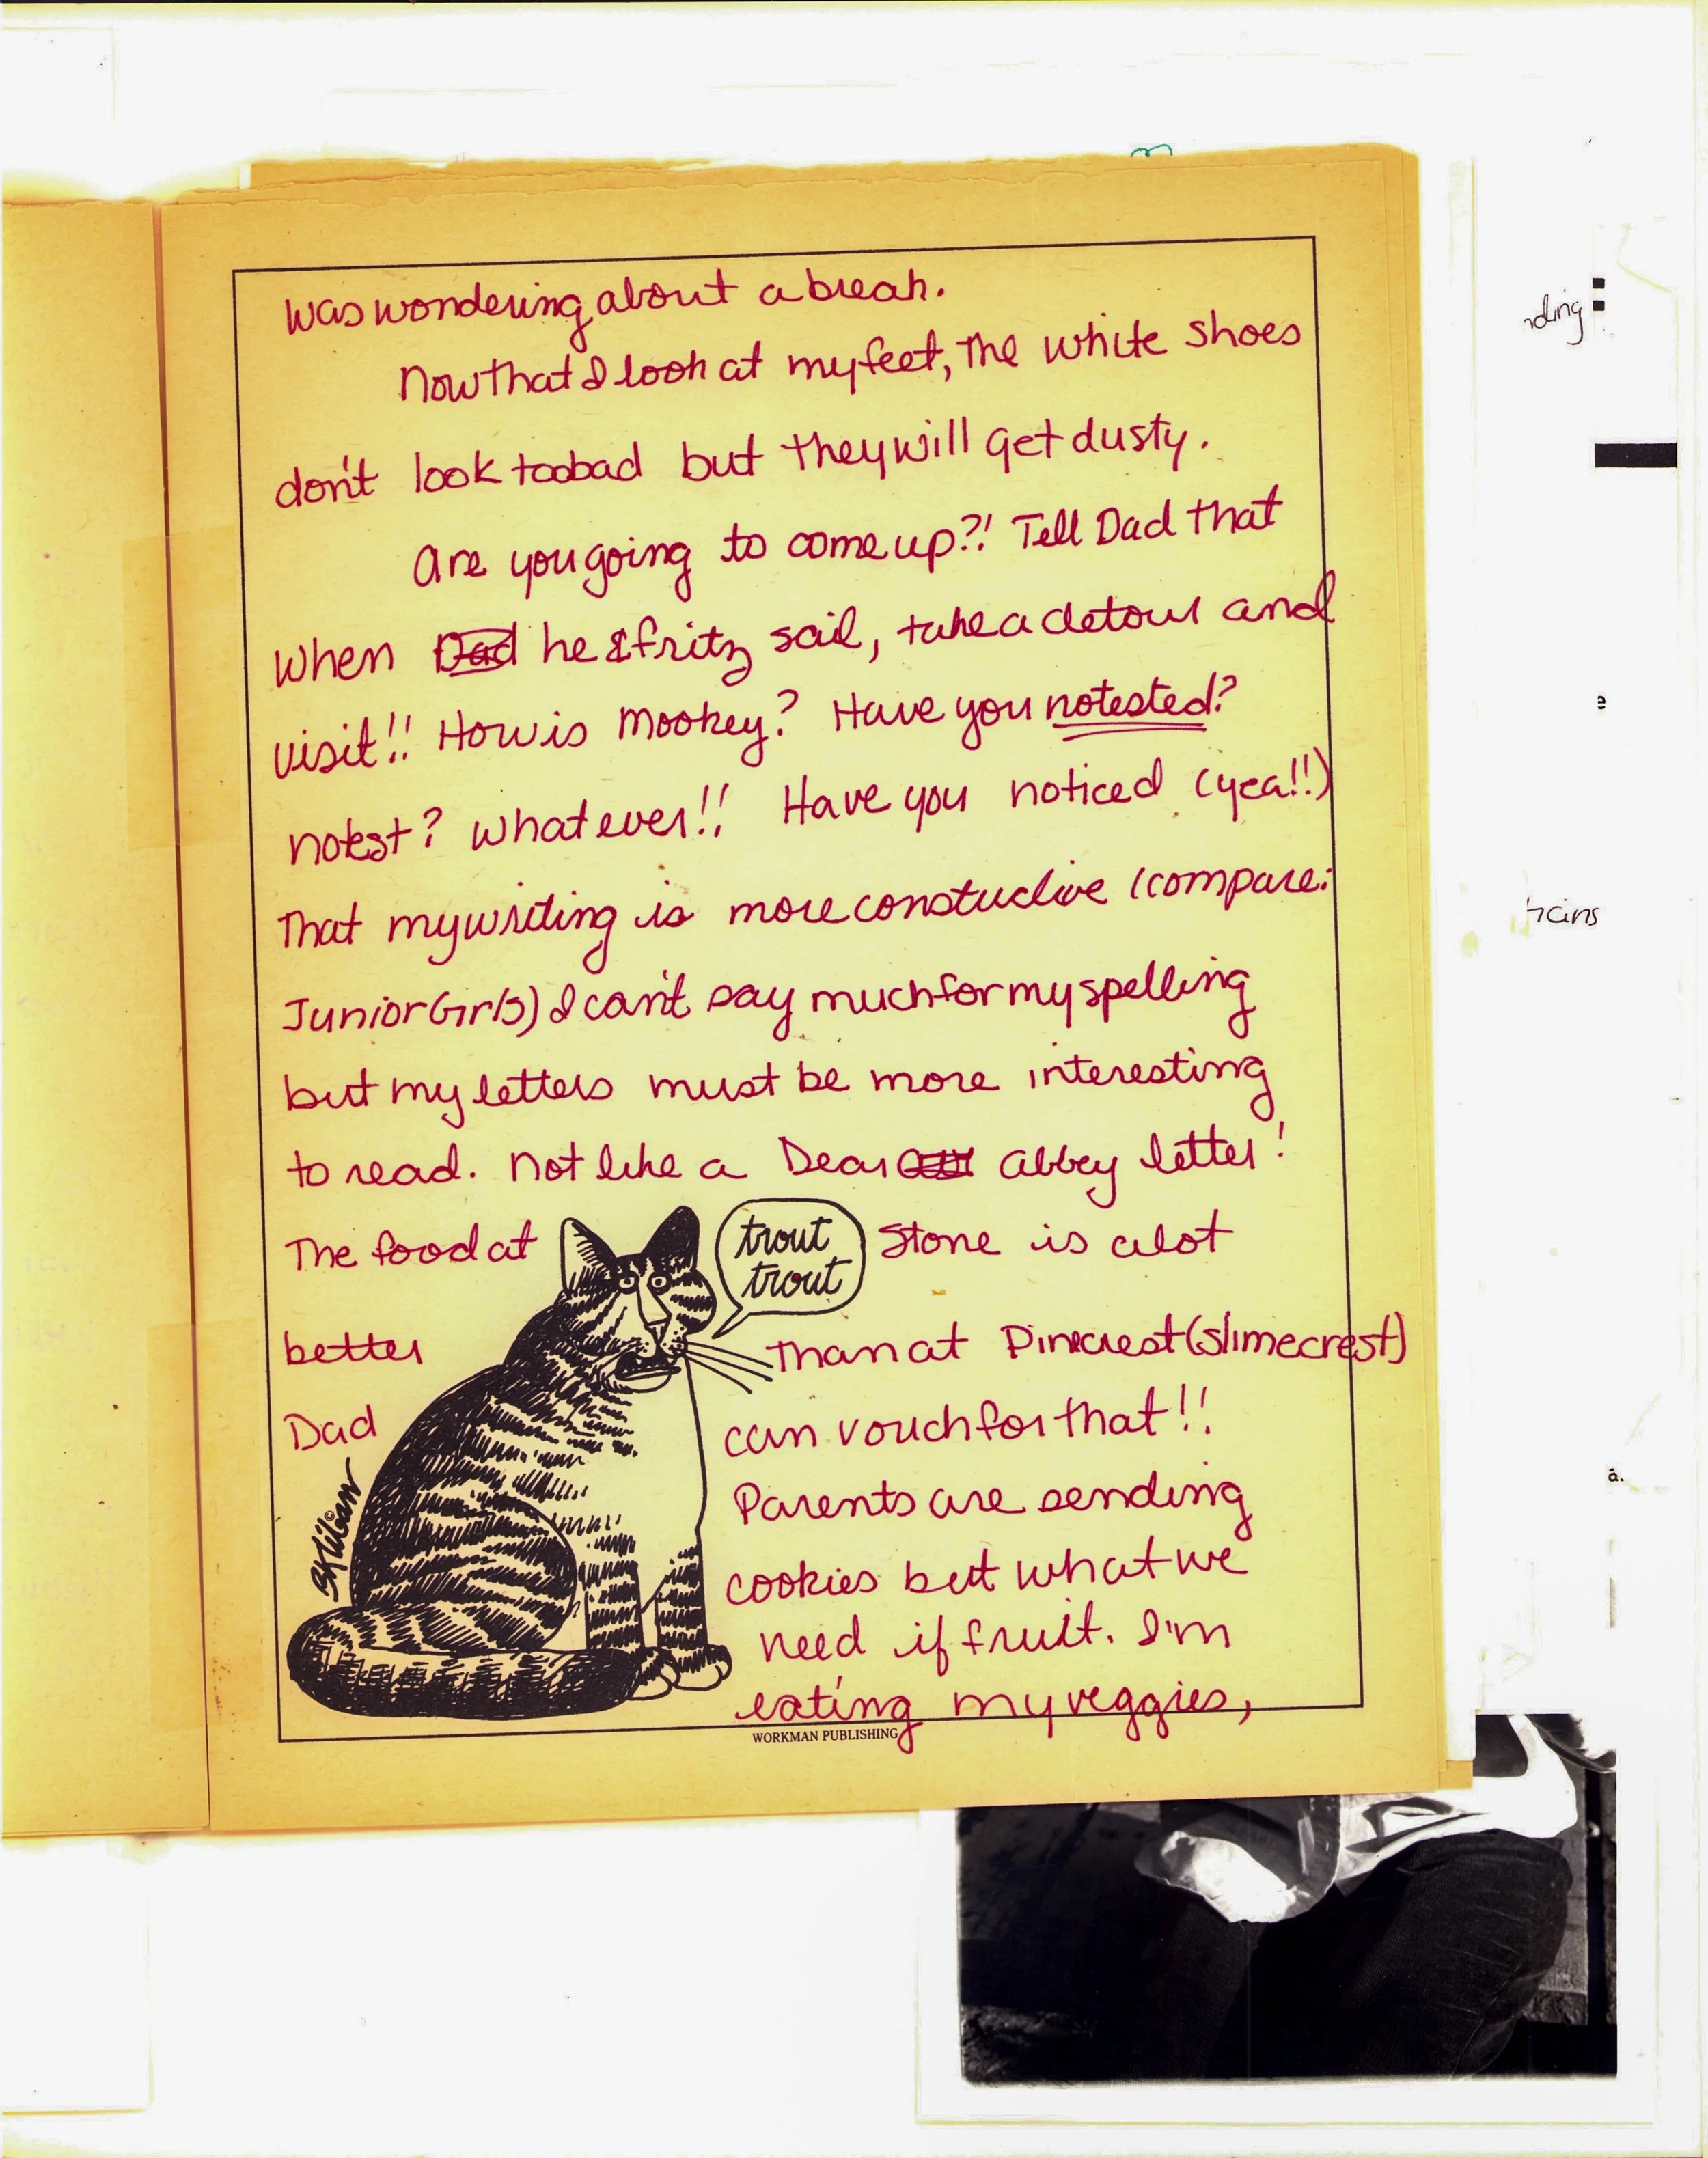 was wondering about a break.
Now that I look at my feet, the white shoes
don't look too bad but they will get dusty.
Are you going to come up?! Tell Dad that
when Dad he & fritz sail, take a detour and
visit!! How is Mookey? Have you notested?
notest? whatever!! Have you noticed (yea!!)
That my writing is more constuctive (compare:
Junior Girls) I can't say much for my spelling
but my letters must be more interesting
to read. Not like a Dear abbey letter!
The food at Stone is alot
trout
trout
better than at Pinecrest (slimecrest)
Dad can vouch for that!!
Parents are sending
cookies but what we
need if fruit. I'm
eating my veggies,
B. Kliban ©
WORKMAN PUBLISHING
nding
e
a.